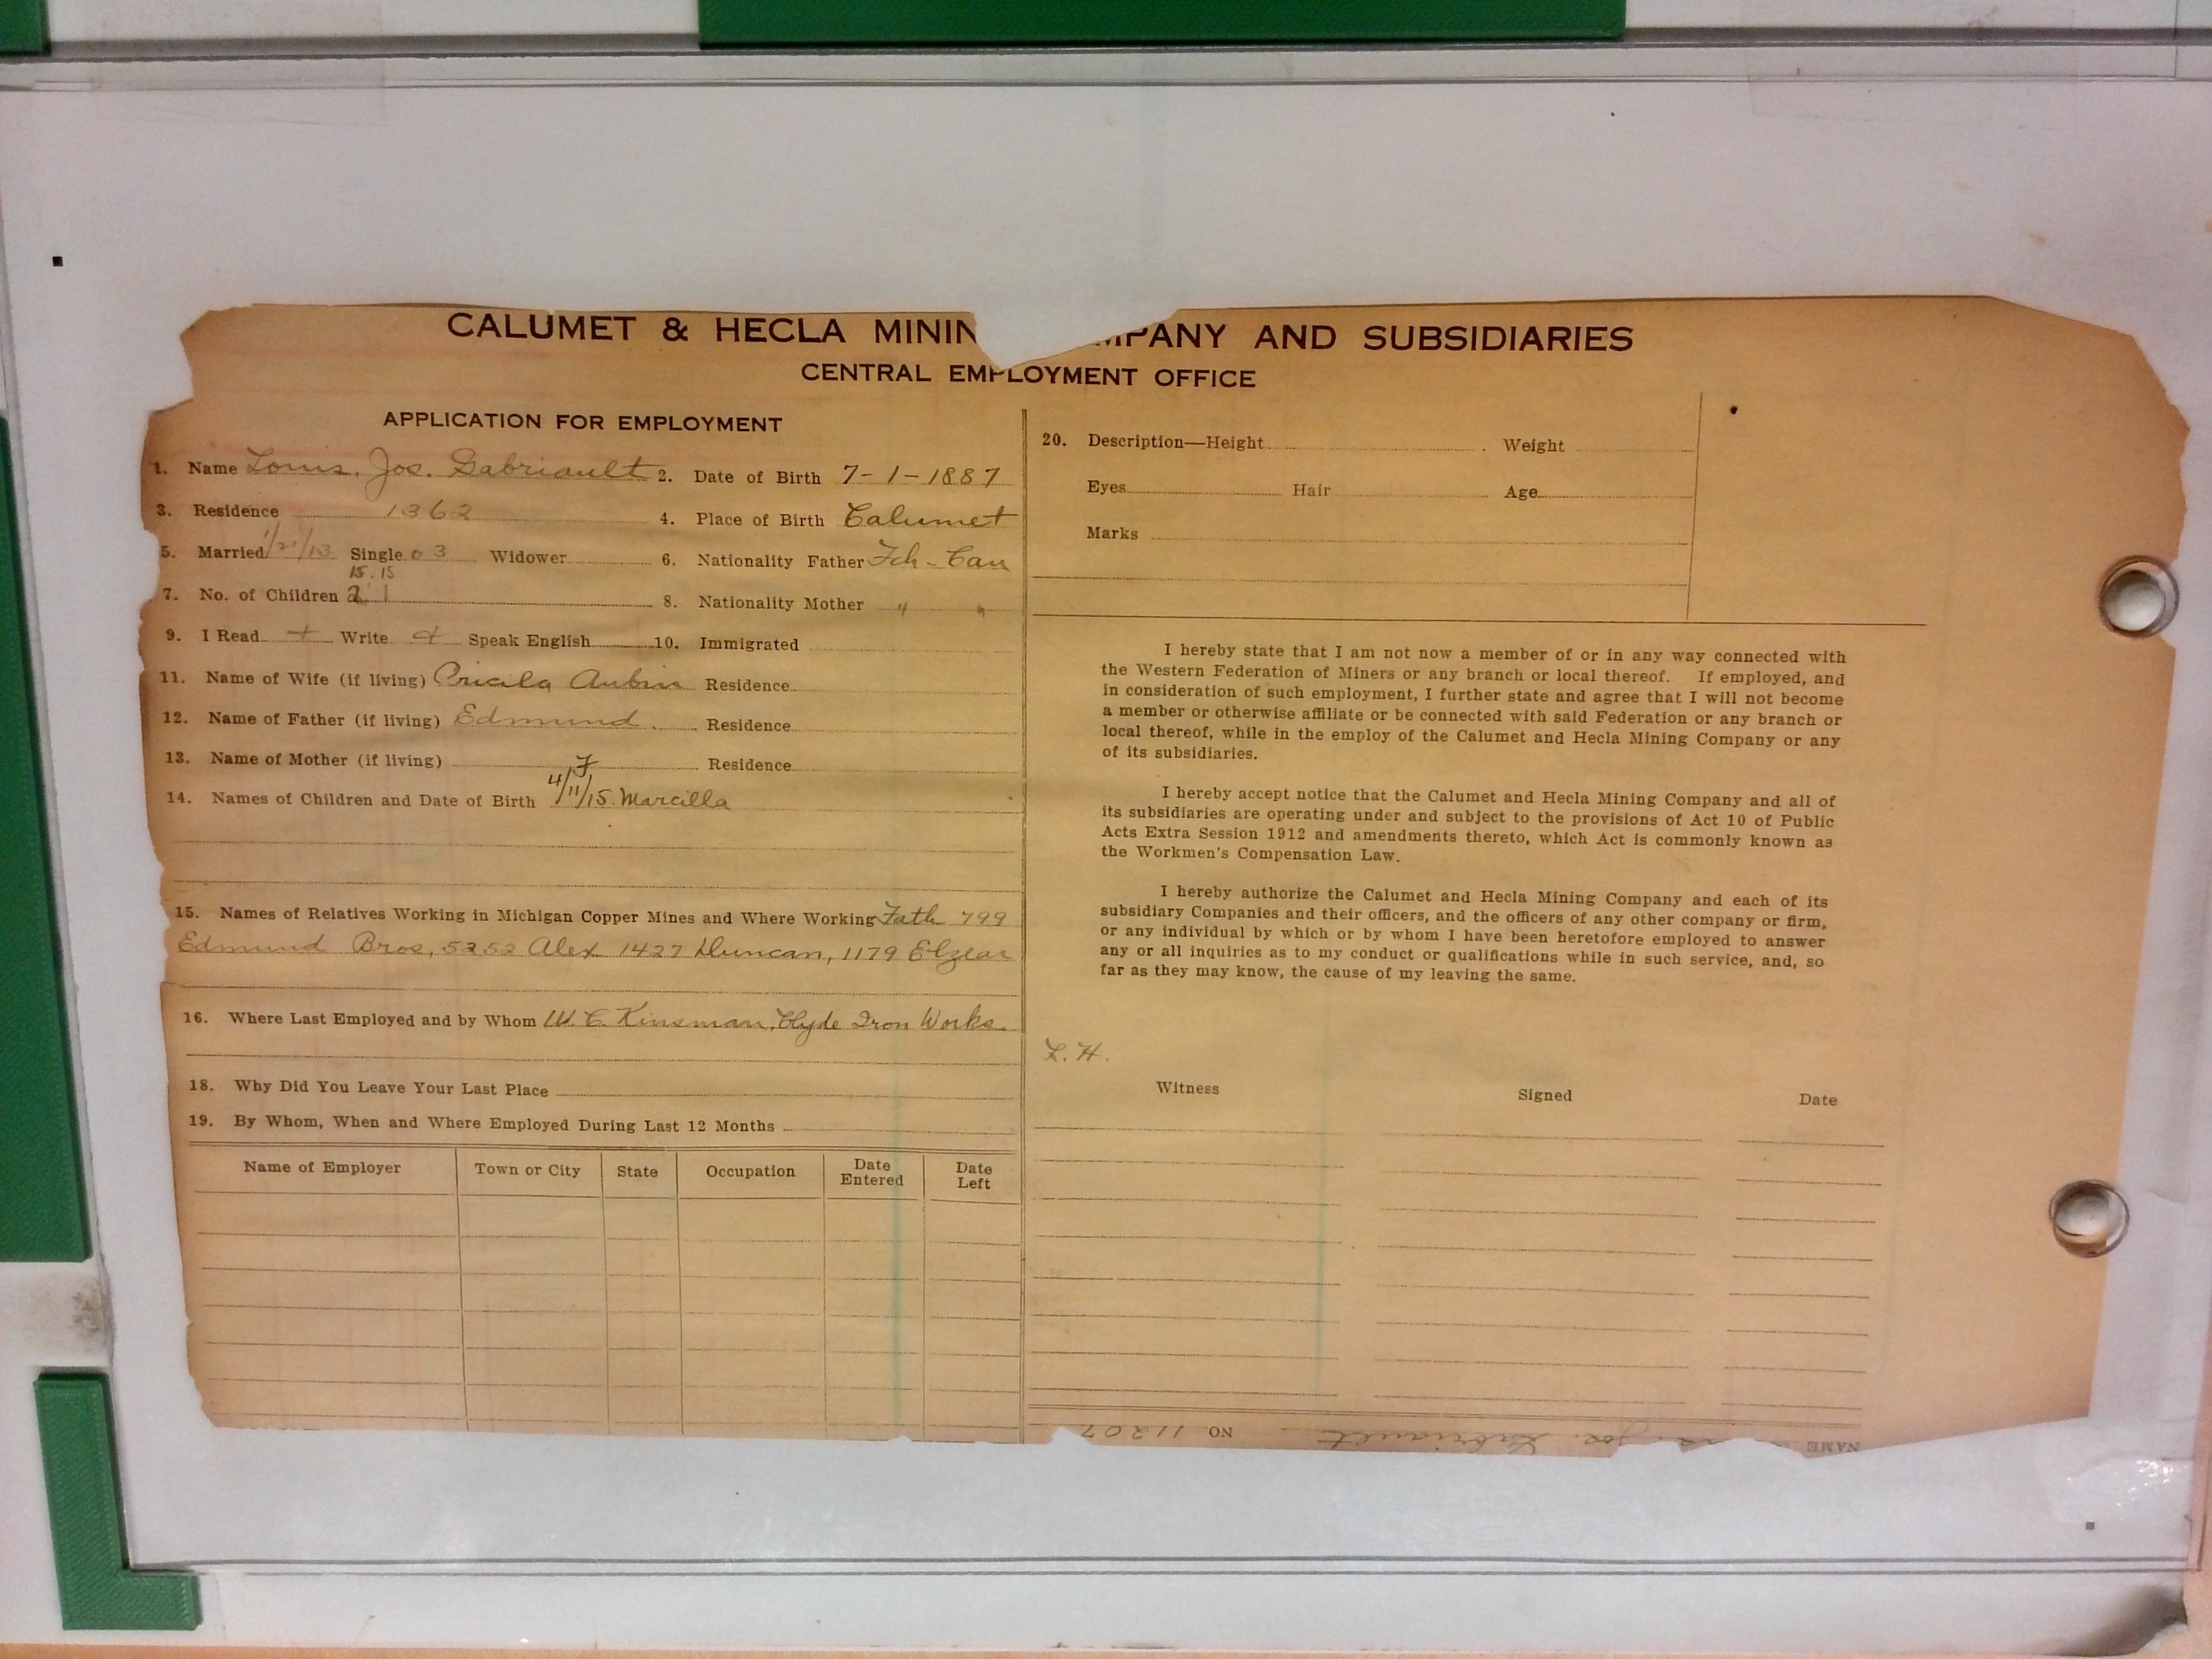 CALUMET & HECLA MININ MPANY AND SUBSIDIARIES
CENTRAL EMPLOYMENT OFFICE
APPLICATION FOR EMPLOYMENT
1. Name Louis. Jos. Gabriault 2. Date of Birth 7-1-1887
3. Residence 1362 4. Place of Birth Calumet
5. Married Single 03 Widower 6. Nationality Father Fch-Can
15.15
7. No. of Children 2 1 8. Nationality Mother " "
9. I Read + Write + Speak English 10. Immigrated
11. Name of Wife (if living) Pricila Aubin Residence
12. Name of Father (if living) Edmund. Residence
13. Name of Mother (if living) Residence
F
14. Names of Children and Date of Birth 4/11/15. Marcilla
15. Names of Relatives Working in Michigan Copper Mines and Where Working Fath 799
Edmund Bros, 5252 Alex 1427 Duncan, 1179 Elzear
16. Where Last Employed and by Whom W. C. Kinsman, Clyde Iron Works
18. Why Did You Leave Your Last Place
19. By Whom, When and Where Employed During Last 12 Months
Name of Employer Town or City State Occupation Date Entered Date Left
20. Description—Height Weight
Eyes Hair Age
Marks
I hereby state that I am not now a member of or in any way connected with
the Western Federation of Miners or any branch or local thereof. If employed, and
in consideration of such employment, I further state and agree that I will not become
a member or otherwise affiliate or be connected with said Federation or any branch or
local thereof, while in the employ of the Calumet and Hecla Mining Company or any
of its subsidiaries.
I hereby accept notice that the Calumet and Hecla Mining Company and all of
its subsidiaries are operating under and subject to the provisions of Act 10 of Public
Acts Extra Session 1912 and amendments thereto, which Act is commonly known as
the Workmen's Compensation Law.
I hereby authorize the Calumet and Hecla Mining Company and each of its
subsidiary Companies and their officers, and the officers of any other company or firm,
or any individual by which or by whom I have been heretofore employed to answer
any or all inquiries as to my conduct or qualifications while in such service, and, so
far as they may know, the cause of my leaving the same.
L. H.
Witness Signed Date
NAME Jos. Gabriault NO. 11207